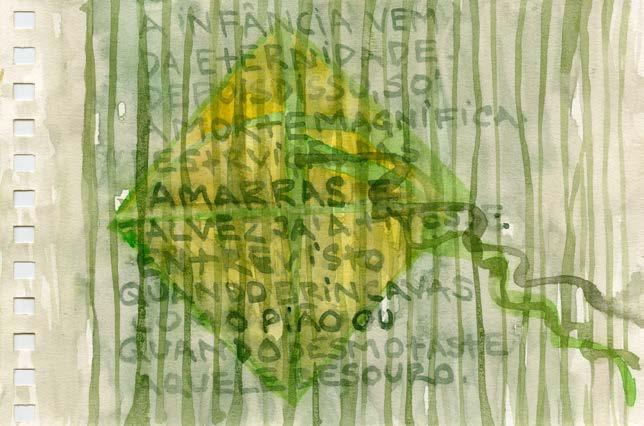 A INFÂNCIA VEM
DA ETERNIDADE.
DEPOIS DISSO, SÓ
A MORTE MAGNÍFICA
AMARRAS E
TALVEZ JÁ A
ENTREVISTO
QUANDO BRINCAVAS
COM O PIÃO OU
QUANDO DESMOTASTE
AQUELE BESOURO.